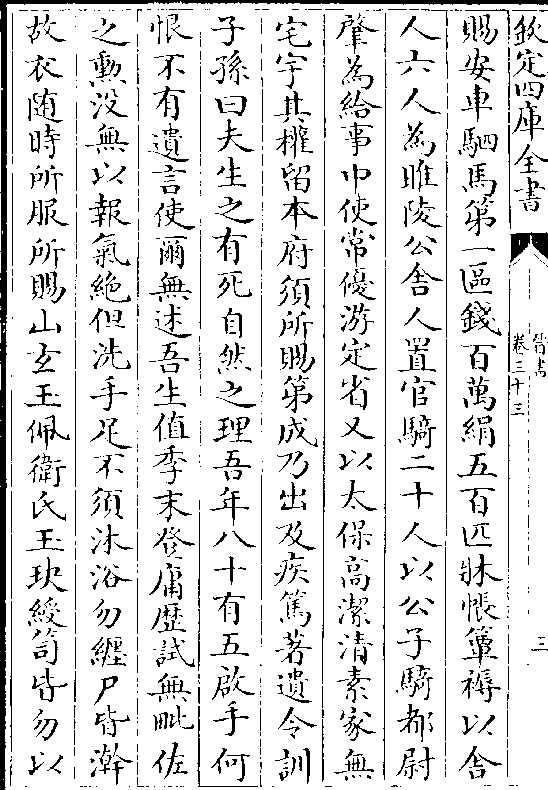 欽定四庫全書
晉書
卷三十三
三
賜安車駟馬第一區錢百萬絹五百匹牀帳簟褥以舍
人六人為睢陵公舍人置官騎二十人以公子騎都尉
肇為給事中使常優游定省又以太保高潔清素家無
宅宇其權留本府須所賜第成乃出及疾篤著遺令訓
子孫曰夫生之有死自然之理吾年八十有五啟手何
恨不有遺言使爾無述吾生值季末登庸歷試無毗佐
之勲没無以報氣絶但洗手足不須沐浴勿纏尸皆澣
故衣随時所服所賜山玄玉佩衛氏玉玦綬笥皆勿以